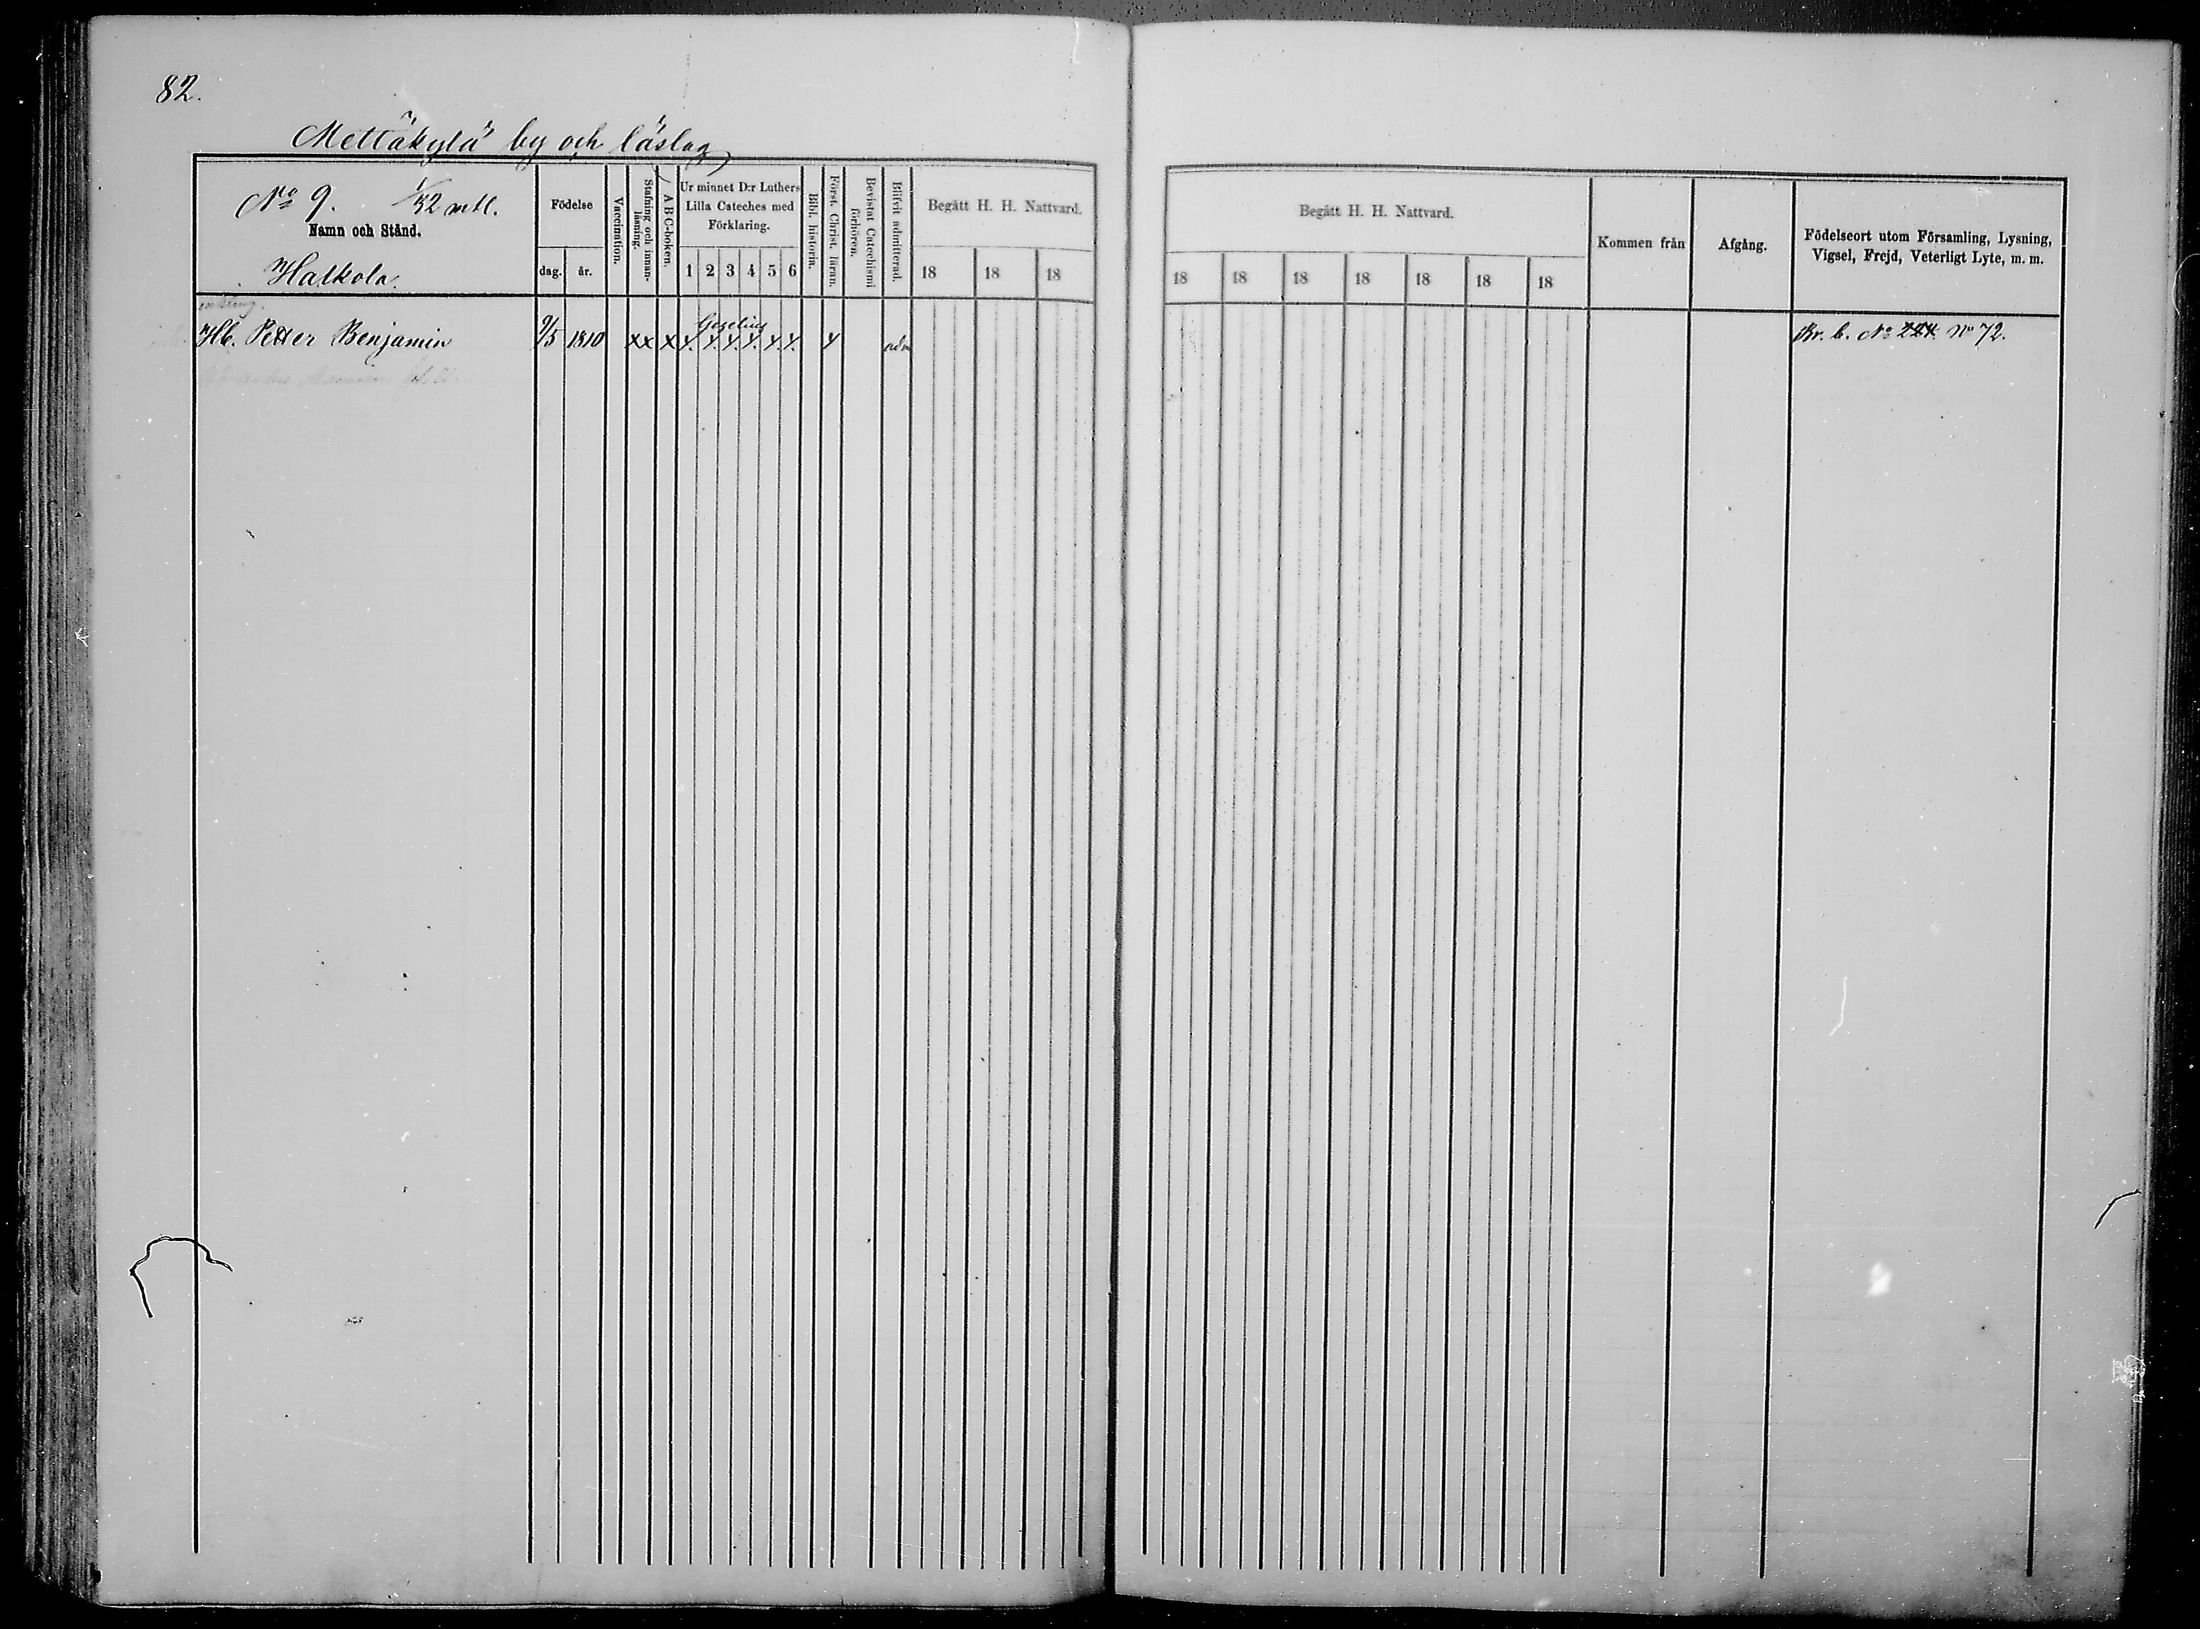 82.
Mettäkylä by och läslag
No 9. 1/32 mtl.
Namn och Stånd.
Halkola.
Födelse
dag. år.
Vaccination.
Stafning och innan-
läsning.
A B C-boken.
Ur minnet D:r Luthers
Lilla Cateches med
Förklaring.
1 2 3 4 5 6
Bibl. historia.
Först. Christ. läran.
Bevistat Catechismi
förhören.
Blifvit admitterad.
Begått H. H. Nattvard.
18 18 18
Begått H. H. Nattvard.
18 18 18 18 18 18 18
Kommen från
Afgång.
Födelseort utom Församling, Lysning,
Vigsel, Frejd, Veterligt Lyte, m. m.
enkling.
Gezelius
Hb. Petter Benjamin 9/5 1810 xx x adm Br. b. No No 72.